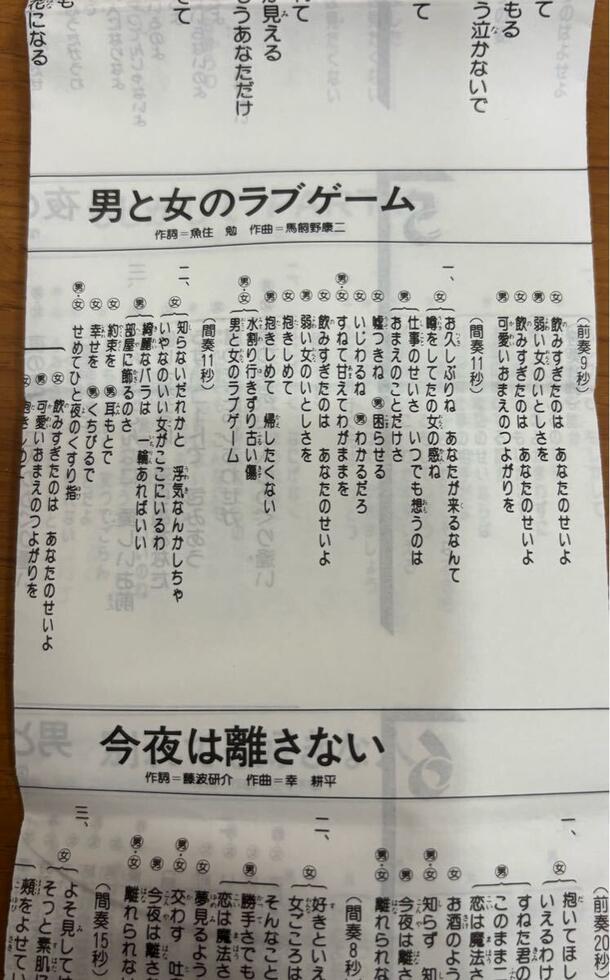 て
もる
う泣かないで
て
れて
が見える
もうあなただけ
て
も
花になる
男と女のラブゲーム
作詞=魚住 勉 作曲=馬飼野康二
(前奏9秒)
女 飲みすぎたのは あなたのせいよ
男 弱い女のいとしさを
女 飲みすぎたのは あなたのせいよ
男 可愛いおまえのつよがりを
(間奏11秒)
一、
女 お久しぶりね あなたが来るなんて
噂をしてたの女の感ね
男 仕事のせいさ いつでも想うのは
おまえのことだけさ
女 嘘つきね 男 困らせる
女 いじわるね 男 わかるだろ
男・女 すねて甘えてわがままを
女 飲みすぎたのは あなたのせいよ
男 弱い女のいとしさを
女 抱きしめて
男 抱きしめて 帰したくない
男・女 水割り行きずり古い傷
男と女のラブゲーム
(間奏11秒)
二、
女 知らないだれかと 浮気なんかしちゃ
いやなのいい女がここにいるわ
男 綺麗なバラは 一輪あればいい
部屋に飾るのさ
女 約束を 男 耳もとで
女 幸せを 男 くちびるで
男・女 せめてひと夜のくすり指
女 飲みすぎたのは あなたのせいよ
男 可愛いおまえのつよがりを
今夜は離さない
作詞=藤波研介 作曲=幸 耕平
(前奏20秒)
一、
女 抱いてほ
いえるわけ
男 すねた君の
このまま二
恋は魔法さ
女 お酒のよ
男・女 知らず 知
今夜は離さ
男・女 離れられな
(間奏8秒)
二、
女 好きといえ
女ごころは
男 そんなこと
勝手さでも
恋は魔法さ
女 夢見るよう
男・女 交わす 吐
今夜は離さ
男・女 離れられな
(間奏15秒)
三、
女 よそ見して
そっと素肌
頬をよせてい